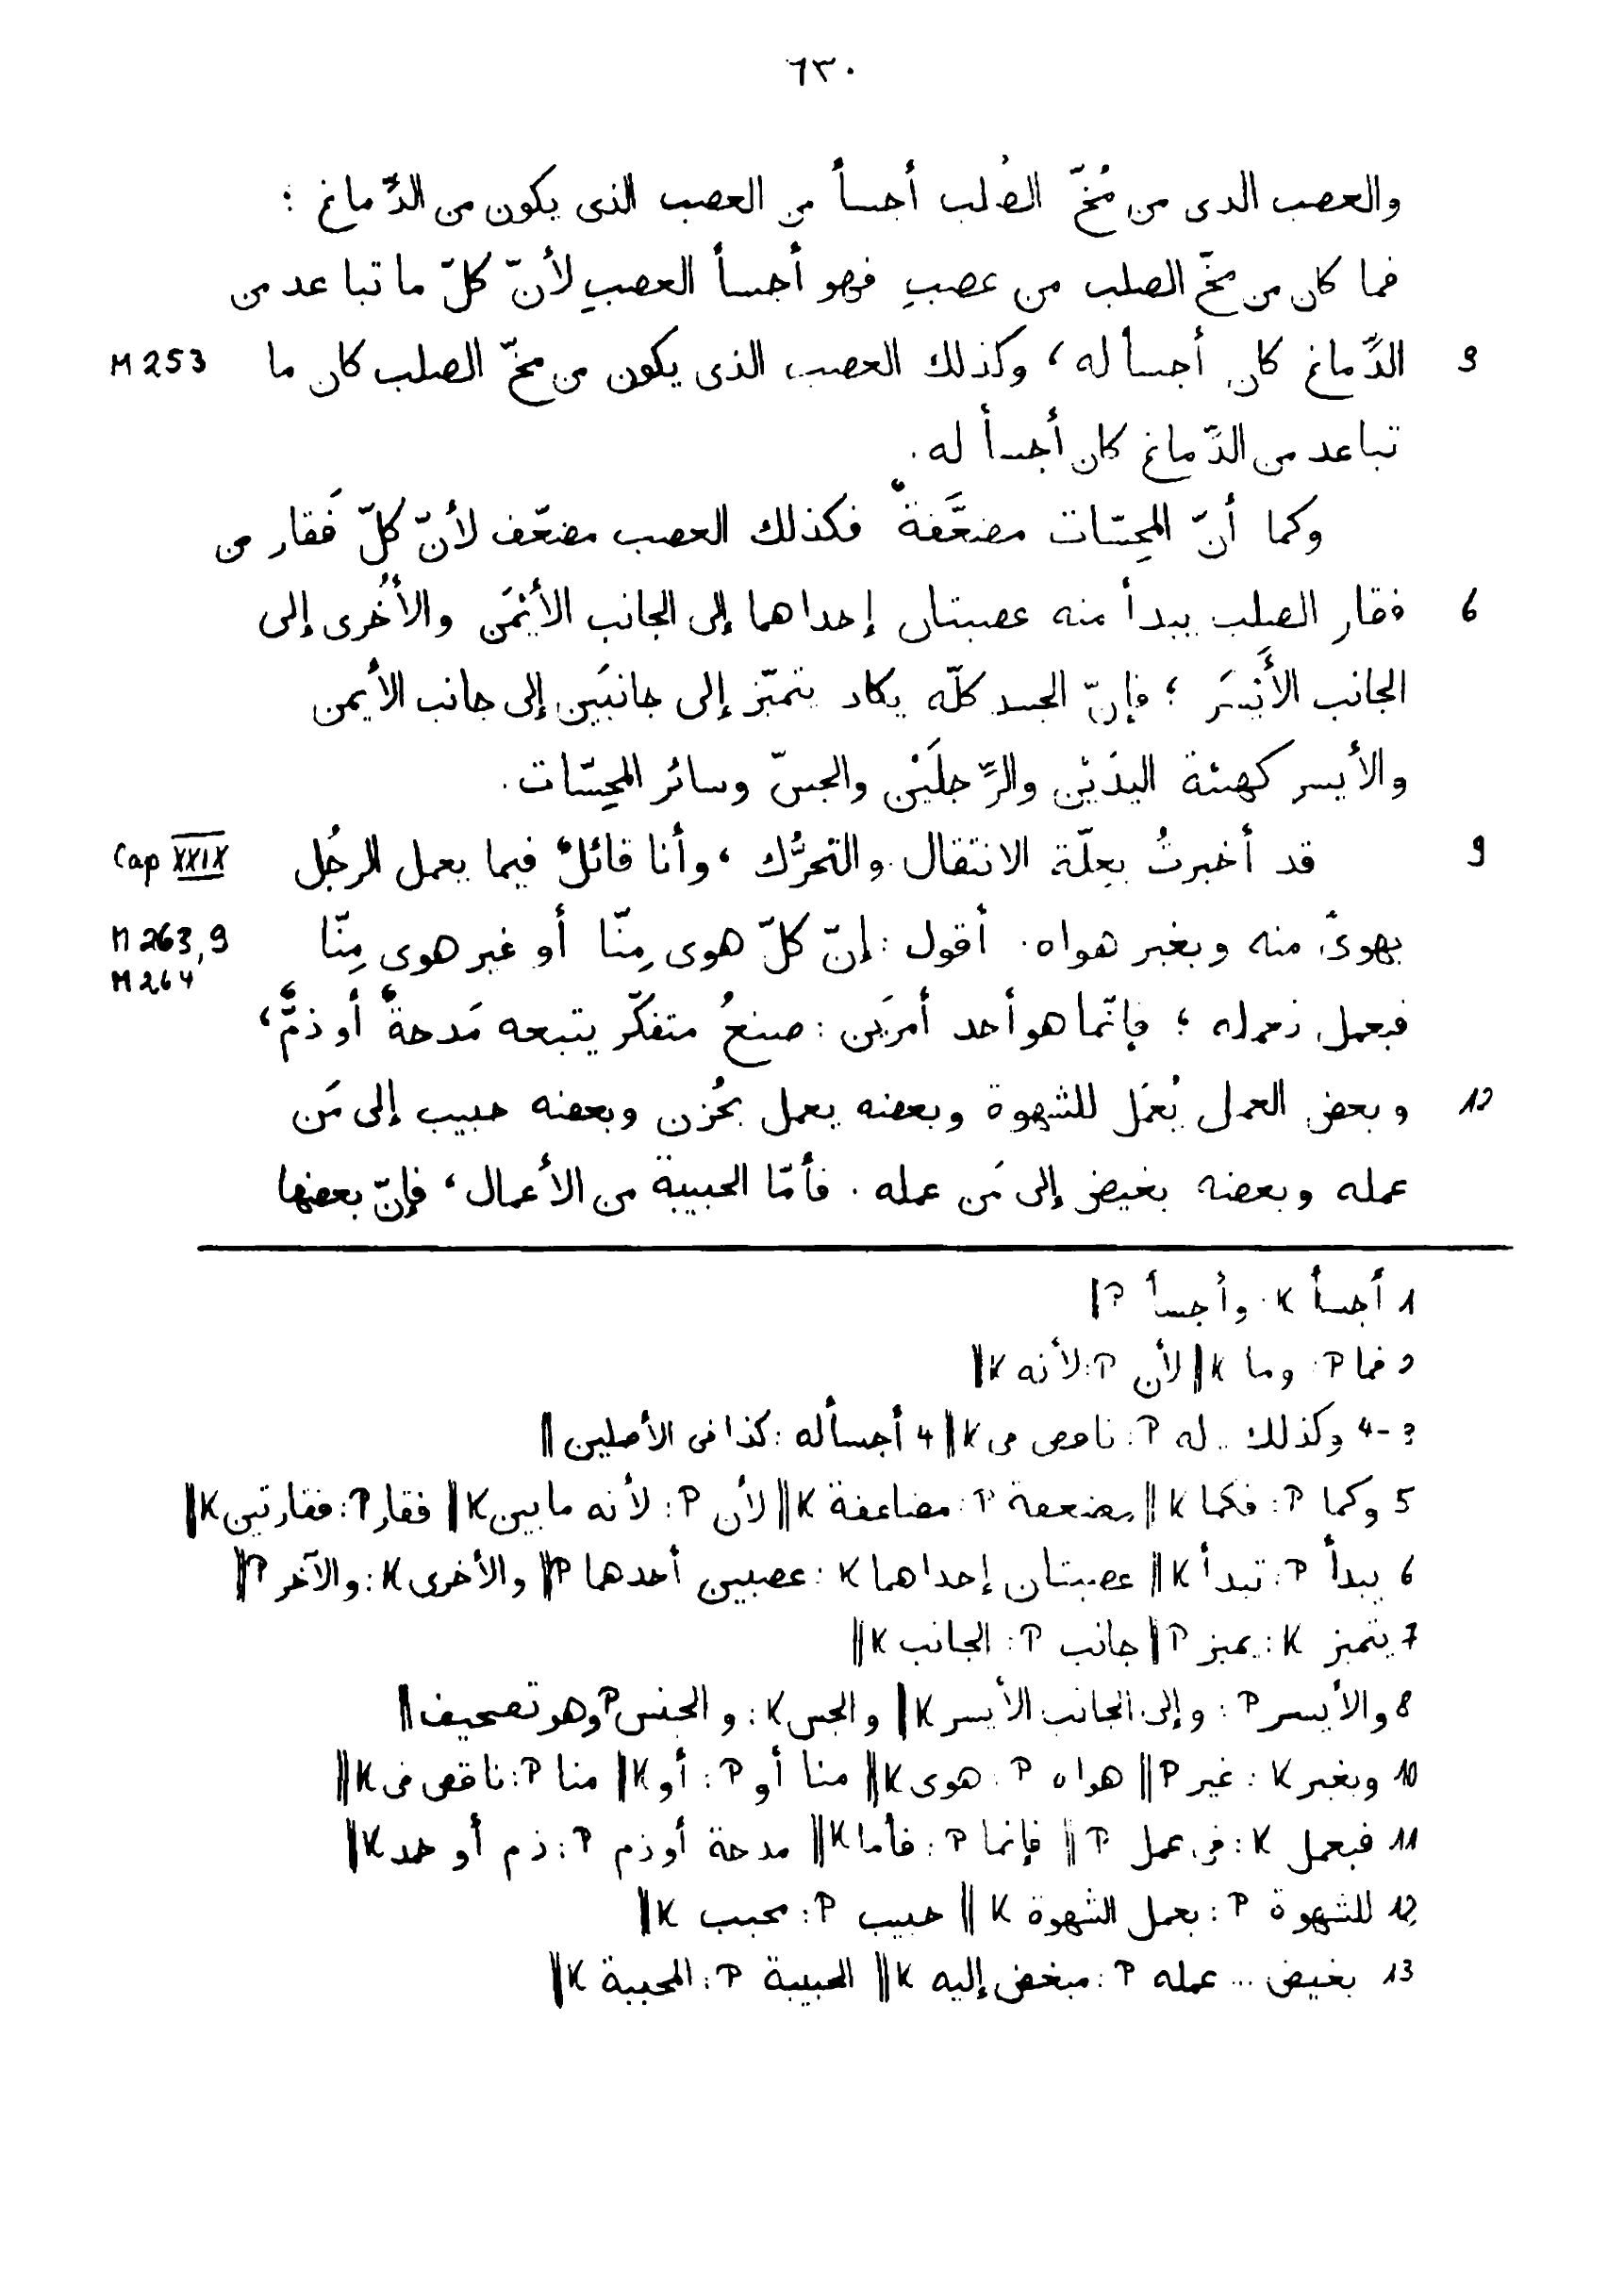 ٦٣٠
والعصب الذى من مُخّ الصُلب أجسأ من العصب الذى يكون من الدِّماغ ؛
فما كان من مخّ الصلب من عصبٍ فهو أجسأ العصبِ لأنّ كلّ ما تباعد من
3 الدِّماغ كان أجسأ له ، وكذلك العصب الذى يكون من مخّ الصلب كان ما M 253
تباعد من الدِّماغ كان أجسأ له .
وكما أنّ المحِسّات مضعَّفةٌ فكذلك العصب مضعّف لأنّ كلّ فَقار من
6 فقار الصلب يبدأ منه عصبتان إحداهما إلى الجانب الأَيْمَن والأُخرى إلى
الجانب الأَيْسَر ؛ فإنّ الجسد كلّه يكاد يتميّز إلى جانبَين إلى جانب الأيمن
والأيسر كهيئة اليدَيْن والرِّجلَيْن والجسّ وسائر المحِسّات .
9 قد أخبرتُ بعِلّة الانتقال والتحرُّك ، وأنا قائلٌ فيما يعمل الرجُل Cap XXIX
بهوىً منه وبغير هواه . أقول : إنّ كلّ هوى مِنّا أو غير هوى مِنّا M 263,9
M 264
فبعمل نعمله ؛ فإنّما هو أحد أمرَين : صنعُ متفكّر يتبعه مَدحةٌ أو ذمٌّ ،
12 وبعض العمل يُعمَل للشهوة وبعضه يعمل بحُزن وبعضه حبيب إلى مَن
عمله وبعضه بغيض إلى مَن عمله . فأمّا الحبيبة من الأعمال ، فإنّ بعضها
1 أجسأ K : وأجسأ P ‖
2 فما P : وما K ‖ لأن P : لأنه K ‖
3-4 وكذلك .. له P : ناقص فى K ‖ 4 أجسأ له : كذا فى الأصلين ‖
5 وكما P : فكما K ‖ مضعفة P : مضاعفة K ‖ لأن P : لأنه ما بين K ‖ فقار P : فقارتين K ‖
6 يبدأ P : تبدأ K ‖ عصبتان إحداهما K : عصبين أحدها P ‖ والأخرى K : والآخر P ‖
7 يتميز K : يميز P ‖ جانب P : الجانب K ‖
8 والأيسر P : وإلى الجانب الأيسر K ‖ والجس K : والجنس P وهو تصحيف ‖
10 وبغير K : غير P ‖ هواه P : هوى K ‖ منا أو P : أو K ‖ منا P : ناقص فى K ‖
11 فبعمل K : فى عمل P ‖ فإنما P : فأما K ‖ مدحة أو ذم P : ذم أو حمد K ‖
12 للشهوة P : بعمل الشهوة K ‖ حبيب P : محبب K ‖
13 بغيض ... عمله P : مبغض إليه K ‖ الحبيبة P : المحببة K ‖